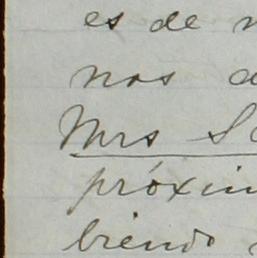 es de
nos
Mrs S
próxim
biendo